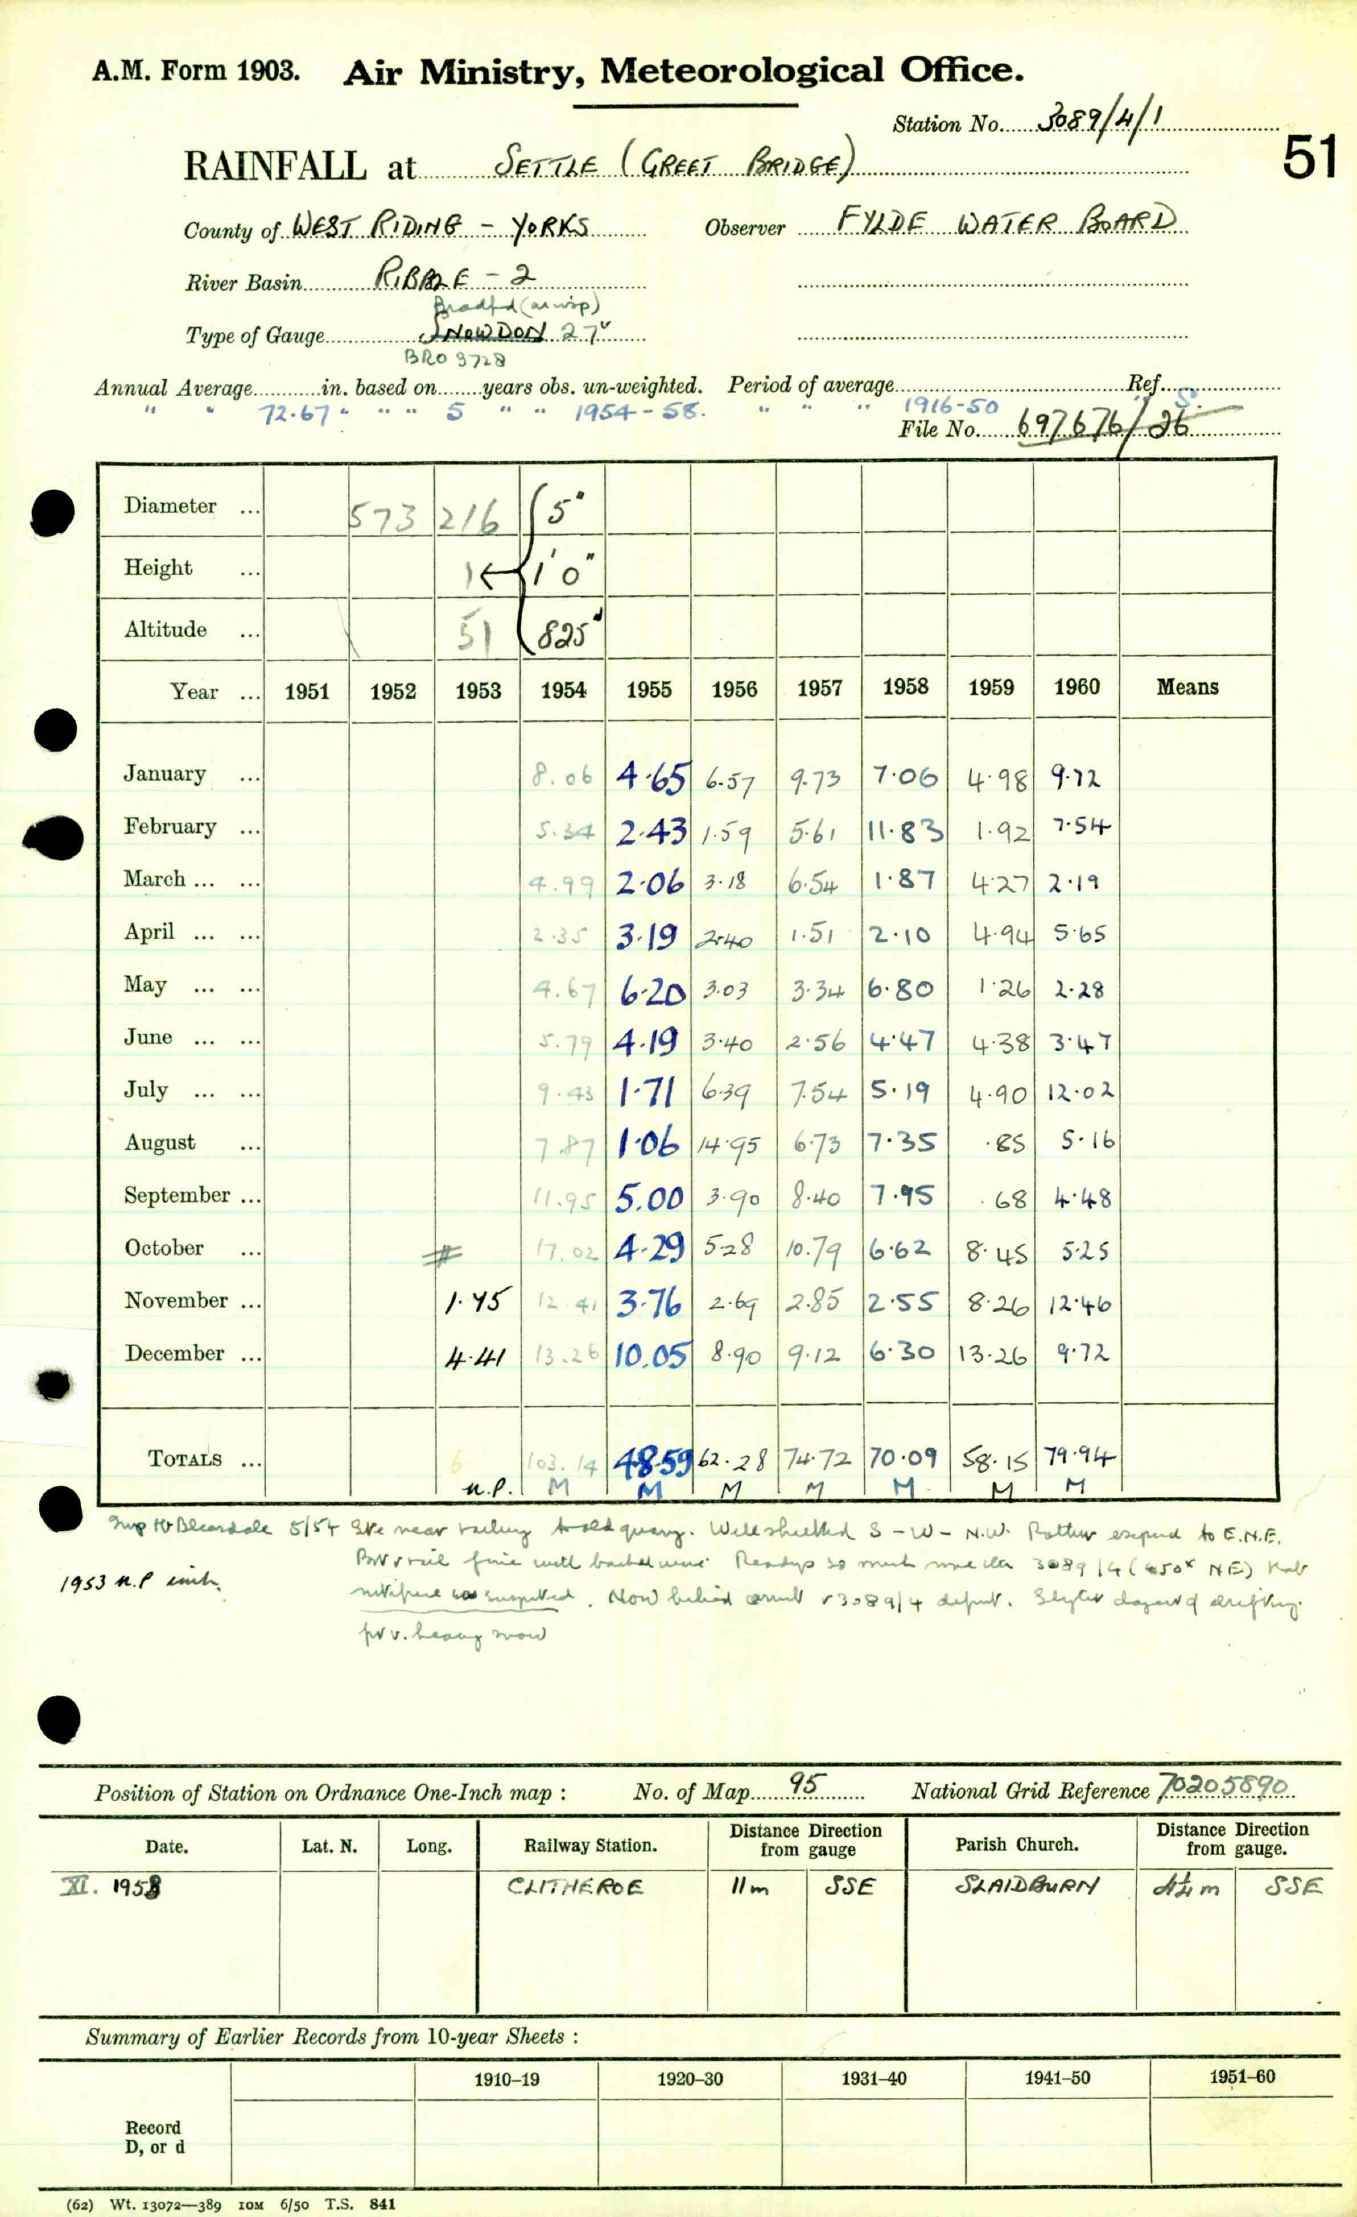 A.M. Form 1903. Air Ministry, Meteorological Office.
Station No. 3089/4/1
51
RAINFALL at SETTLE (GREET BRIDGE)
County of WEST RIDING - YORKS Observer FYLDE WATER BOARD
River Basin RIBBLE - 2
Bradfd
Type of Gauge SNOWDON 27"
BRO 3728
Annual Average in. based on years obs. un-weighted. Period of average Ref. S.
" " 72.67 " " " 5 " " 1954-58. " " " 1916-50
File No. 697676/26
Diameter ... 573 216 5"
Height ... 1 ← 1' 0"
Altitude ... 51 825'
Year ... 1951 1952 1953 1954 1955 1956 1957 1958 1959 1960 Means
January ... 8.06 4.65 6.57 9.73 7.06 4.98 9.72
February ... 5.34 2.43 1.59 5.61 11.83 1.92 7.54
March ... ... 4.99 2.06 3.18 6.54 1.87 4.27 2.19
April ... ... 2.35 3.19 2.40 1.51 2.10 4.94 5.65
May ... ... 4.67 6.20 3.03 3.34 6.80 1.26 2.28
June ... ... 5.79 4.19 3.40 2.56 4.47 4.38 3.47
July ... ... 9.43 1.71 6.39 7.54 5.19 4.90 12.02
August ... 7.87 1.06 14.95 6.73 7.35 .85 5.16
September ... 11.95 5.00 3.90 8.40 7.95 .68 4.48
October ... 17.02 4.29 5.28 10.79 6.62 8.45 5.25
November ... 1.45 12.41 3.76 2.69 2.85 2.55 8.26 12.46
December ... 4.41 13.26 10.05 8.90 9.12 6.30 13.26 9.72
TOTALS ... 6 103.14 48.59 62.28 74.72 70.09 58.15 79.94
n.p. M M M M M M M
5/54 Site near railing to old quarry. Well shielded S-W-N.W. Rather exposed to E.N.E.
so much more than 3089/4 (650x NE) that
1953 n.p. inch.
suspected. Now behind 3089/4 of drifting
for v. heavy snow
Position of Station on Ordnance One-Inch map : No. of Map 95 National Grid Reference 70205890
Date. Lat. N. Long. Railway Station. Distance Direction from gauge Parish Church. Distance Direction from gauge.
XI. 1953 CLITHEROE 11m SSE SLAIDBURN 4¼ m SSE
Summary of Earlier Records from 10-year Sheets :
1910-19 1920-30 1931-40 1941-50 1951-60
Record
D, or d
(62) Wt. 13072—389 10M 6/50 T.S. 841